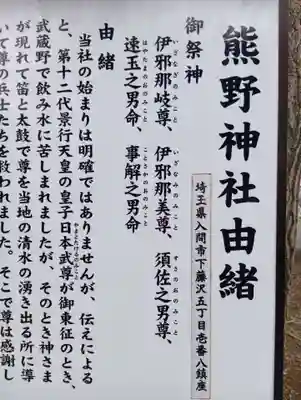 熊野神社由緒
埼玉県入間市下藤沢五丁目壱番八鎮座
御祭神
いざなぎのみこと いざなみのみこと すさのおのみこと
伊邪那岐尊、伊邪那美尊、須佐之男尊、
はやたまのおのみこと ことさかのおのみこと
速玉之男命、事解之男命
由緒
当社の始まりは明確ではありませんが、伝えによる
と、第十二代景行天皇の皇子日本武尊が御東征のとき、
やまとたけるのみこと
武蔵野で飲み水に苦しまれましたが、そのとき神さま
が現れて笛と太鼓で尊を当地の清水の湧き出る所に導
いて尊の兵士たちを救われました。そこで尊は感謝し